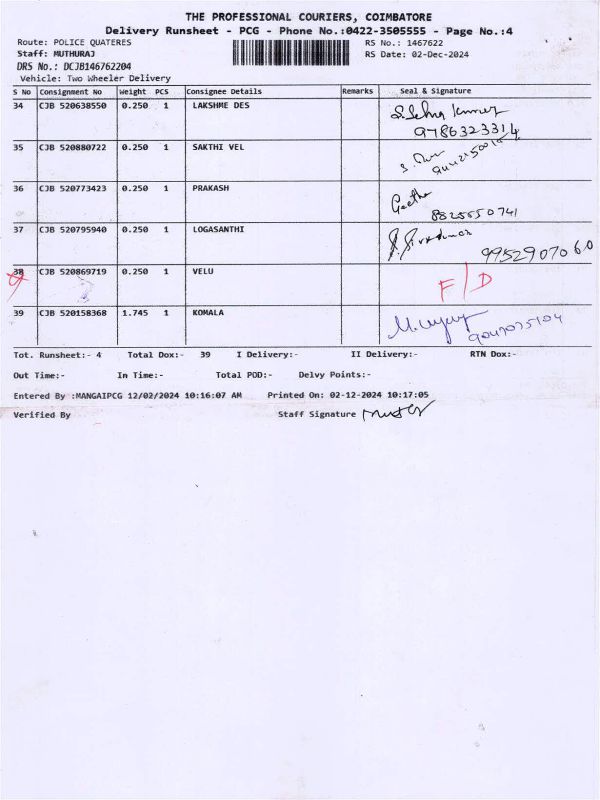 THE PROFESSIONAL COURIERS, COIMBATORE
Delivery Runsheet - PCG - Phone No.:0422-3505555 - Page No.:4
Route: POLICE QUATERES RS No.: 1467622
Staff: MUTHURAJ RS Date: 02-Dec-2024
DRS No.: DCJB146762204
Vehicle: Two Wheeler Delivery
S No Consignment No Weight PCS Consignee Details Remarks Seal & Signature
34 CJB 520638550 0.250 1 LAKSHME DES
9786323314
35 CJB 520880722 0.250 1 SAKTHI VEL
36 CJB 520773423 0.250 1 PRAKASH Geetha
8825550741
37 CJB 520795940 0.250 1 LOGASANTHI
9952907060
38 CJB 520869719 0.250 1 VELU F/D
39 CJB 520158368 1.745 1 KOMALA
Tot. Runsheet:- 4 Total Dox:- 39 I Delivery:- II Delivery:- RTN Dox:-
Out Time:- In Time:- Total POD:- Delvy Points:-
Entered By :MANGAIPCG 12/02/2024 10:16:07 AM Printed On: 02-12-2024 10:17:05
Verified By Staff Signature